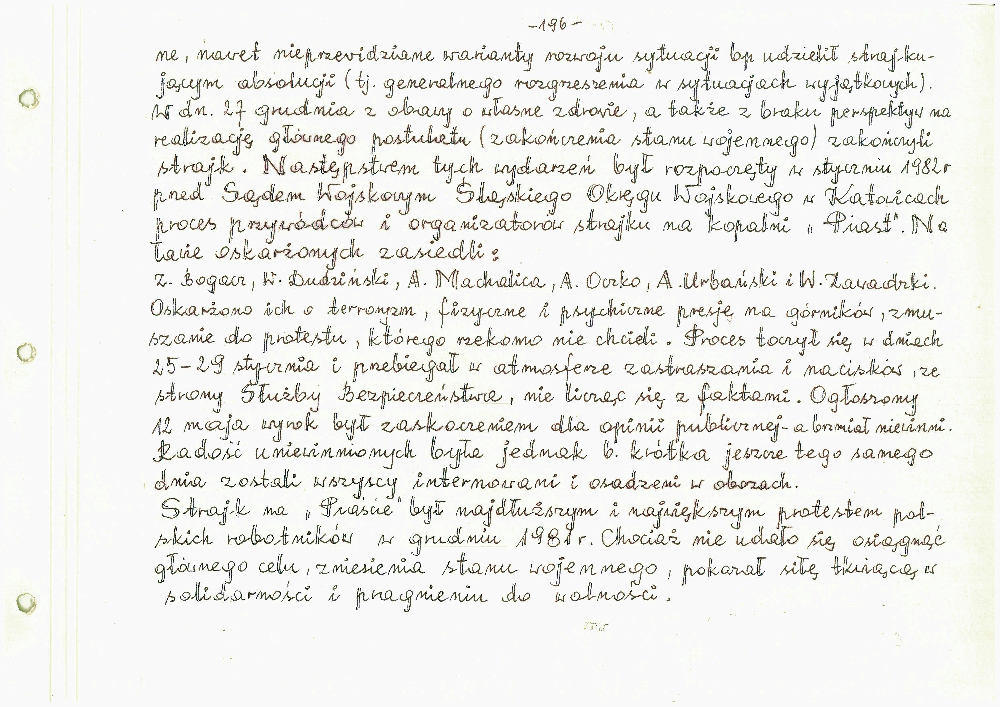 -196-
ne, nawet nieprzewidziane warianty rozwoju sytuacji bp udzielił strajku-
jącym absolucji (tj. generalnego rozgrzeszenia w sytuacjach wyjątkowych).
W dn. 27 grudnia z obawy o własne zdrowie, a także z braku perspektyw na
realizację głównego postulatu (zakończenia stanu wojennego) zakończyli
strajk. Następstwem tych wydarzeń był rozpoczęty w styczniu 1982r
przed Sądem Wojskowym Śląskiego Okręgu Wojskowego w Katowicach
proces przywódców i organizatorów strajku na kopalni „Piast". Na
ławie oskarżonych zasiedli:
Z. Bogacz, W. Dudziński, A. Machalica, A. Oczko, A. Urbański i W. Zawadzki.
Oskarżono ich o terroryzm, fizyczne i psychiczne presję na górników, zmu-
szanie do protestu, którego rzekomo nie chcieli. Proces toczył się w dniach
25-29 stycznia i przebiegał w atmosferze zastraszania i nacisków, ze
strony Służby Bezpieczeństwa, nie licząc się z faktami. Ogłoszony
12 maja wyrok był zaskoczeniem dla opinii publicznej - a brzmiał niewinni.
Radość uniewinnionych była jednak b. krótka jeszcze tego samego
dnia zostali wszyscy internowani i osadzeni w obozach.
Strajk na „Piaście" był najdłuższym i największym protestem pol-
skich robotników w grudniu 1981r. Chociaż nie udało się osiągnąć
głównego celu, zniesienia stanu wojennego, pokazał siłę tkwiącą w
solidarności i pragnieniu do wolności.